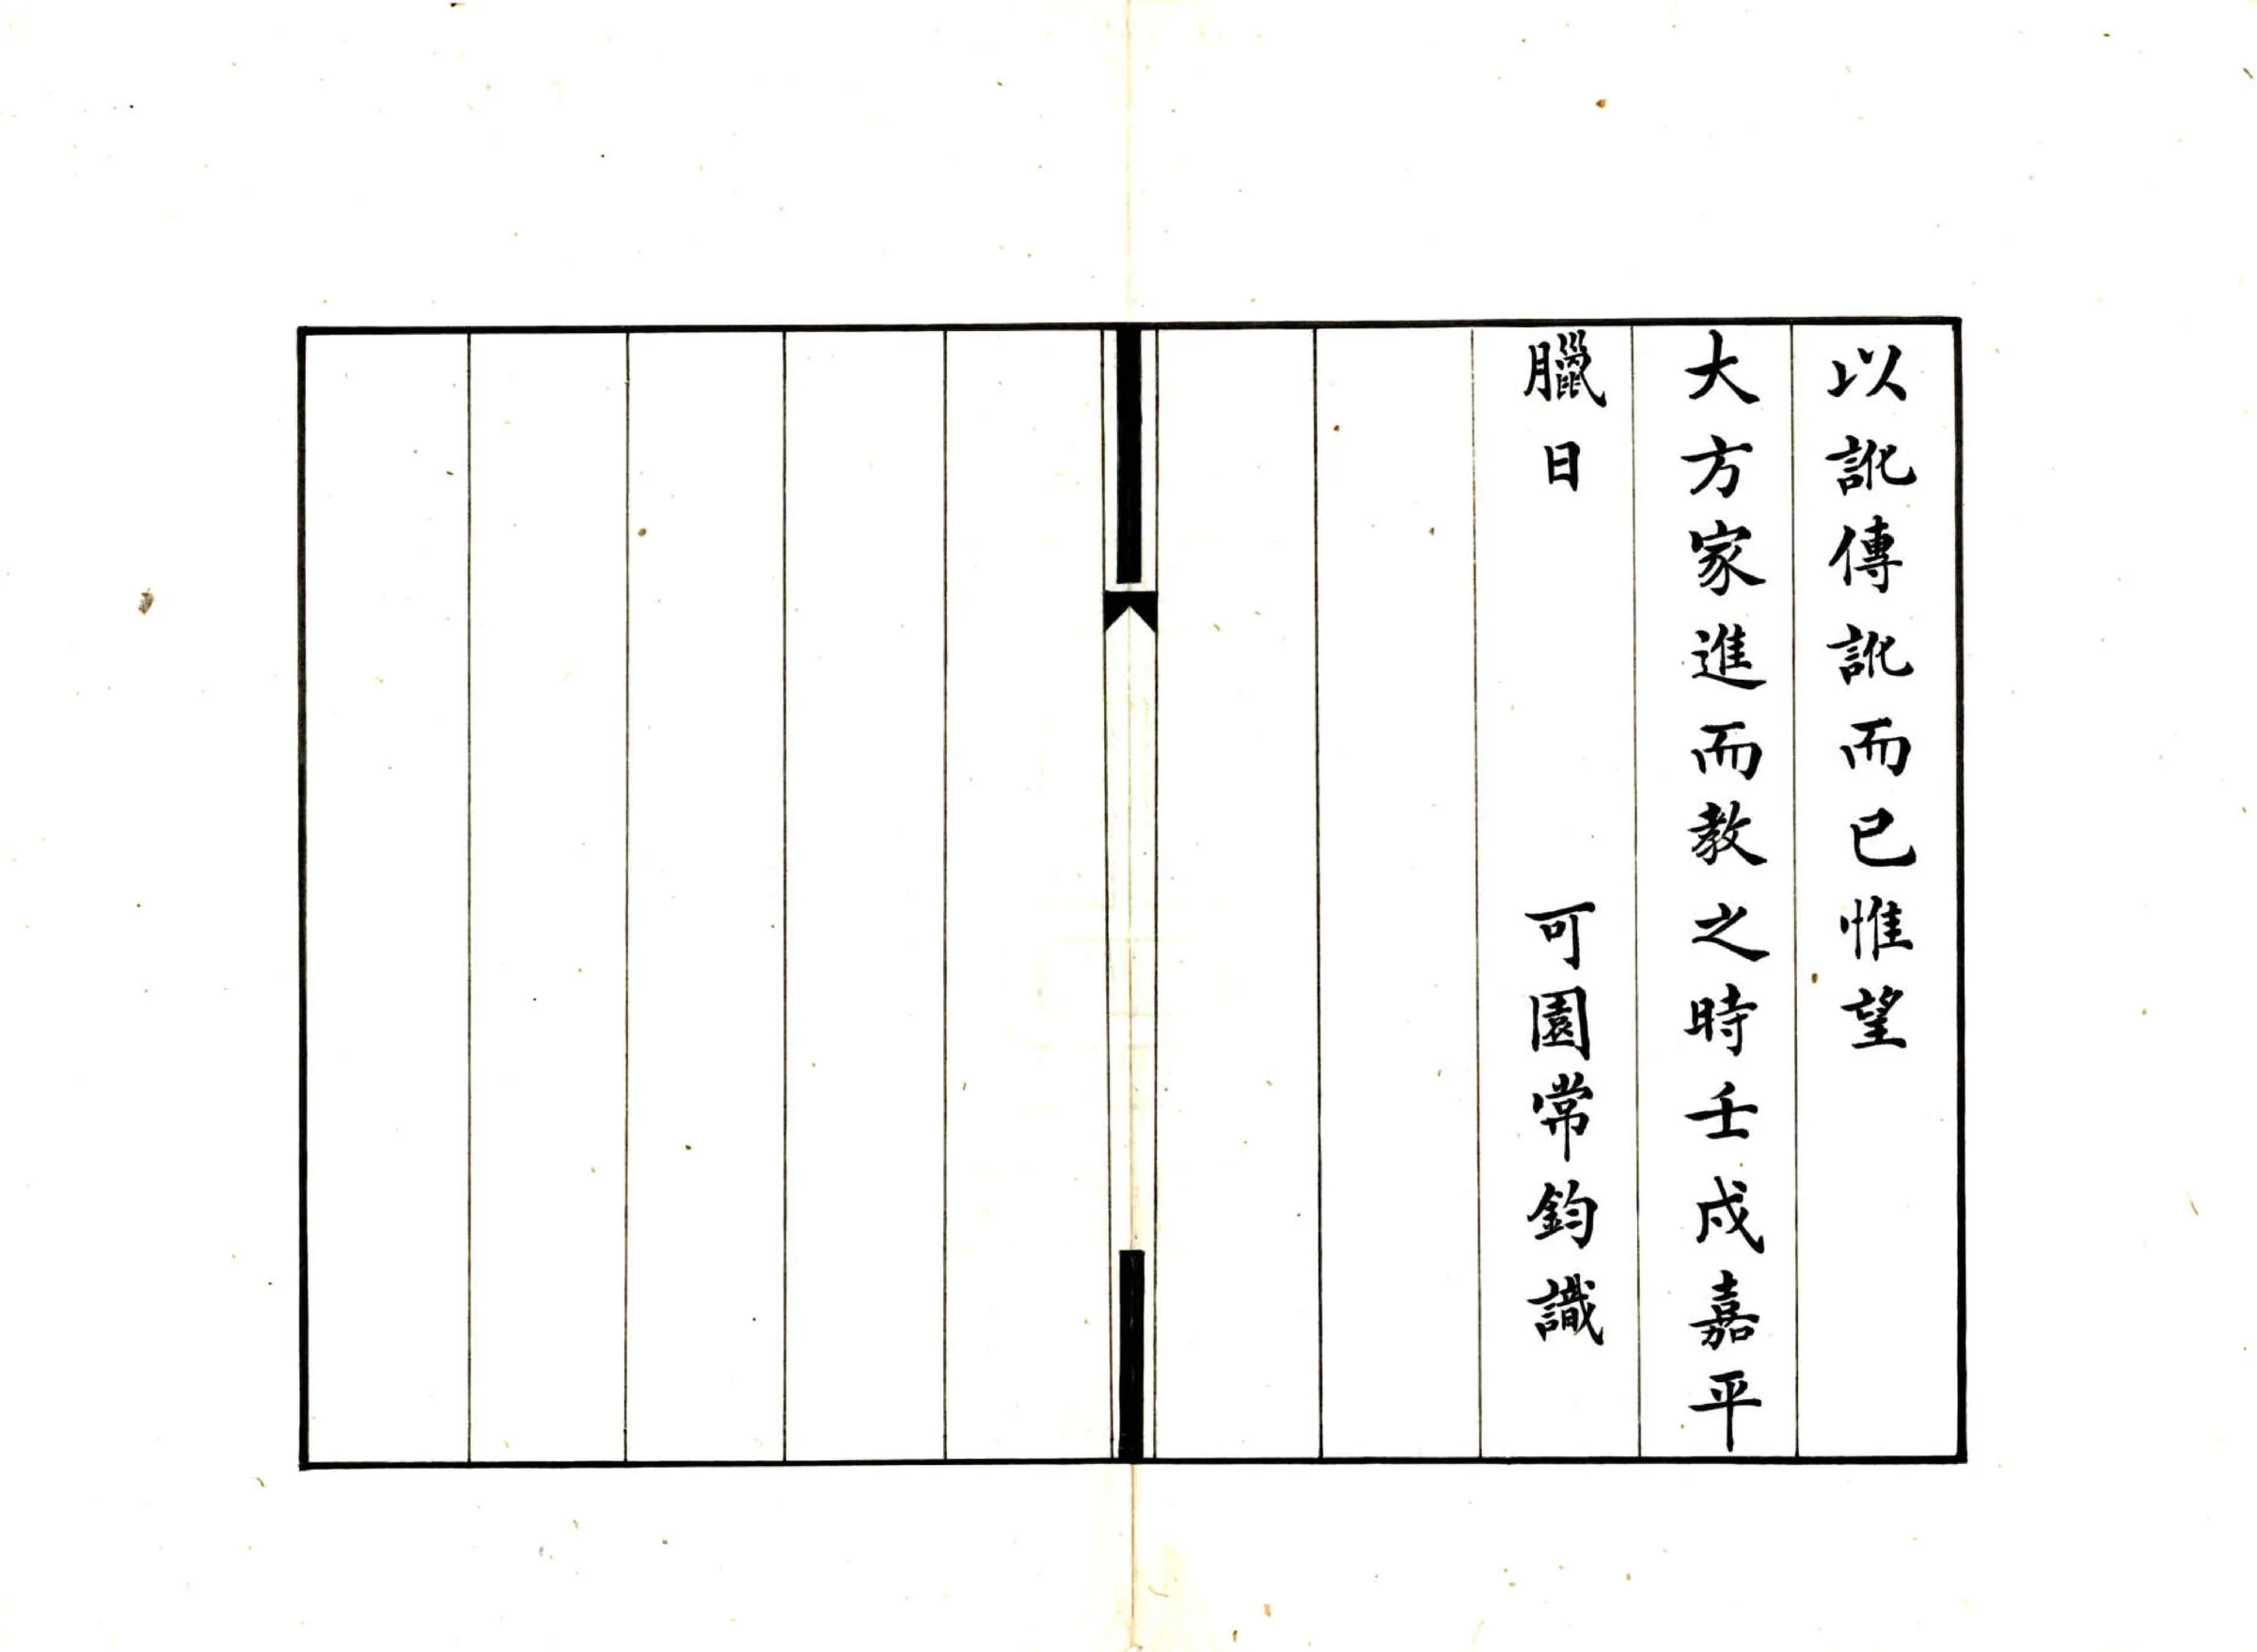 以訛傳訛而已惟望
大方家進而教之時壬戌嘉平
臘日　　　　可園常鈞識